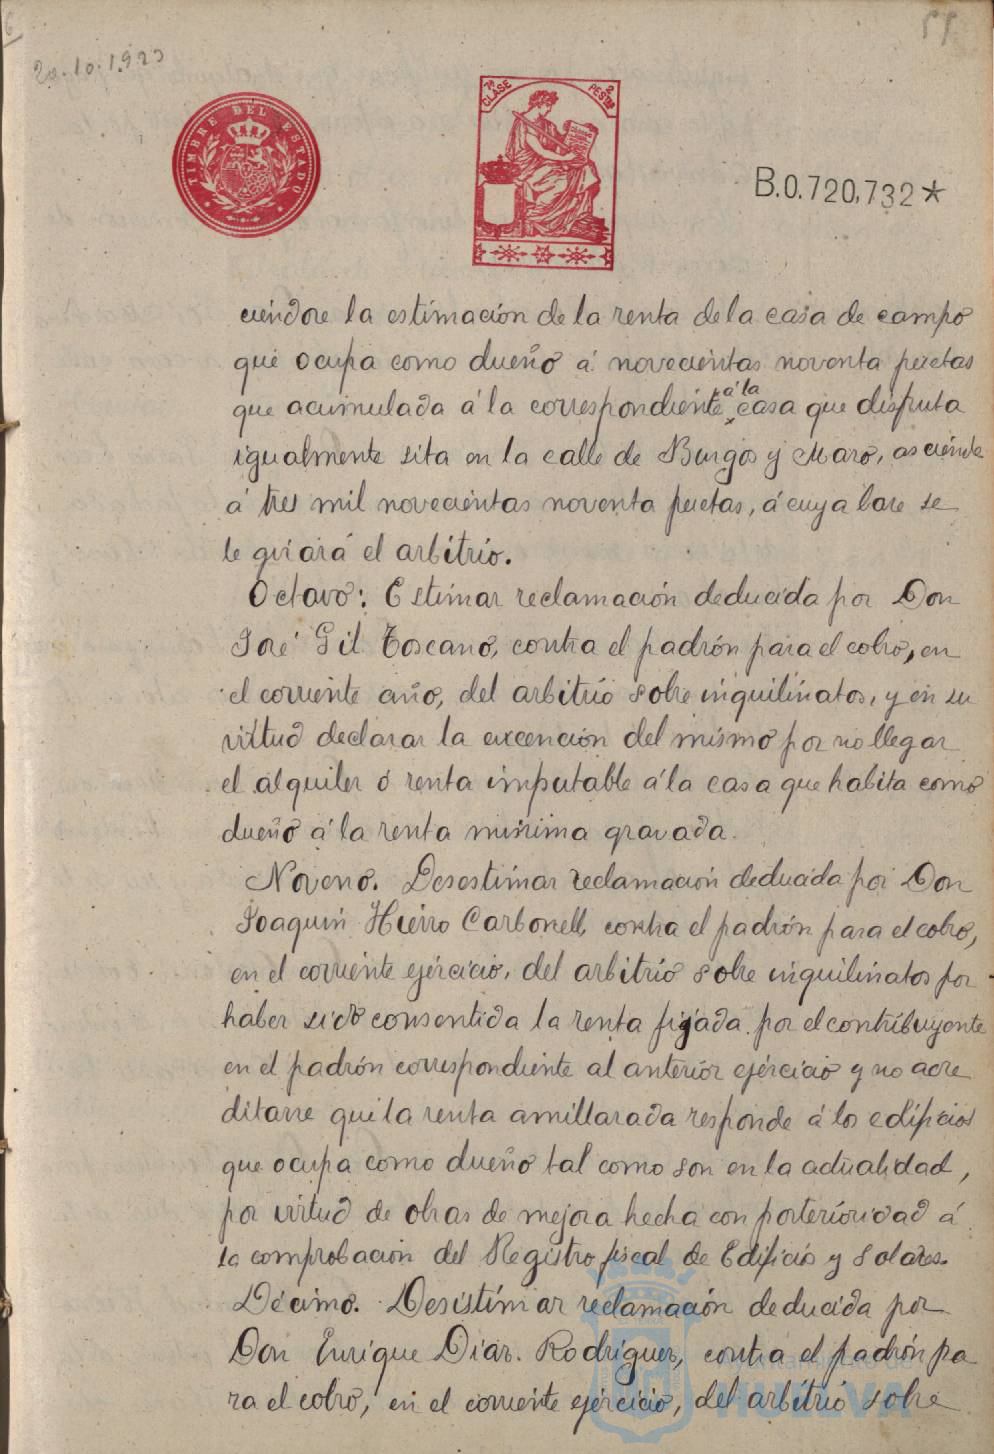 20.10.1923
TIMBRE DEL ESTADO
7ª CLASE
2 PESTAS
B.0.720,732*
ciéndose la estimación de la renta de la casa de campo
que ocupa como dueño á novecientas noventa pesetas
que acumulada á la correspondiente á la casa que disfruta
igualmente sita en la calle de Burgos y Mazo, asciende
á tres mil novecientas noventa pesetas, á cuya base se
le girará el arbitrio.
Octavo: Estimar reclamación deducida por Don
José Gil Toscano, contra el padrón para el cobro, en
el corriente año, del arbitrio sobre inquilinatos, y en su
virtud declarar la excención del mismo por no llegar
el alquiler ó renta imputable á la casa que habita como
dueño á la renta mínima gravada.
Noveno. Desestimar reclamación deducida por Don
Joaquín Hierro Carbonell, contra el padrón para el cobro,
en el corriente ejercicio, del arbitrio sobre inquilinatos por
haber sido consentida la renta fijada por el contribuyente
en el padrón correspondiente al anterior ejercicio y no acre
ditarse que la renta amillarada responde á los edificios
que ocupa como dueño tal como son en la actualidad,
por virtud de obras de mejora hecha con posterioridad á
la comprobación del Registro fiscal de Edificios y Solares.
Décimo. Desistimar reclamación deducida por
Don Enrique Díaz Rodríguez, contra el padrón pa
ra el cobro, en el corriente ejercicio, del arbitrio sobre
HUELVA